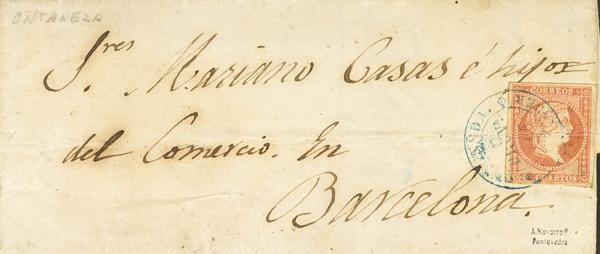 ONTANEDA
S.res Mariano Casas é hijos
CORREOS
del Comercio. En
CUARTOS
Barcelona.
A. Navarro P.
Pontevedra